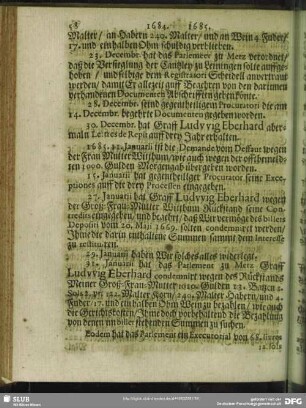 58 1684. 1685.
Malter/ an Habern 240. Malter/ und an Wein 4. Fuder/
17. und ein halben Ohm schuldig verblieben.
23. Decembr. hat das Parlement zu Metz verordnet/
daß die Versieglung der Cantzley zu Leiningen solte auffge-
hoben / und selbige dem Registratori Scheidell anvertraut
werden/ damit Er allezeit auff Begehren von den darinnen
verhandenen Documenten Abschrifften geben könte.
28. Decembr. seind gegentheiligem Procuratori die am
14. Decembr. begehrte Documenten gegeben worden.
30. Decembr. hat Graff Ludvvig Eberhard aber-
mall Lettres de Repit auff drey Jahr erhalten.
1685. 12. Januarii ist die Demande vom Deffaut wegen
der Frau Mutter Witthum/ wie auch wegen der offtbemeldten
1000. Gulden Morgengab übergeben worden.
15. Januarii hat gegentheiliger Procurator seine Exce-
ptiones auff die drey Processen eingegeben.
27. Januarii hat Graff Ludvvig Eberhard wegen
der Groß-Frau-Mutter Witthum Rückstand seine Con-
tredits eingegeben, und begehrt/ daß Wir vermöge des billets
Depositi vom 20. Maji 1669. solten condemniret werden/
Ihme die darin enthaltene Summen sammt dem Interesse
zu restituiren.
29. Januarii haben Wir solches alles widerlegt.
31. Januarii hat das Parlement zu Metz Graff
Ludvvig Eberhard condemnirt wegen des Rückstands
Meiner Groß-Frau-Mutter Gulden 13. Batzen 2.
112. Malter Korn/ 240. Malter Habern/ und 4.
Fuder 17. und ein halben Ohm Wein zu bezahlen/ wie auch
die Gerichtskosten/ Ihme doch vorbehaltend die Bezahlung
von denen im billet stehenden Summen zu suchen.
Eodem hat das Parlement ein Executorial von 68. livres
12. sols
SLUB
Wir führen Wissen.
gefördert von der
Deutschen Forschungsgemeinschaft
DFG